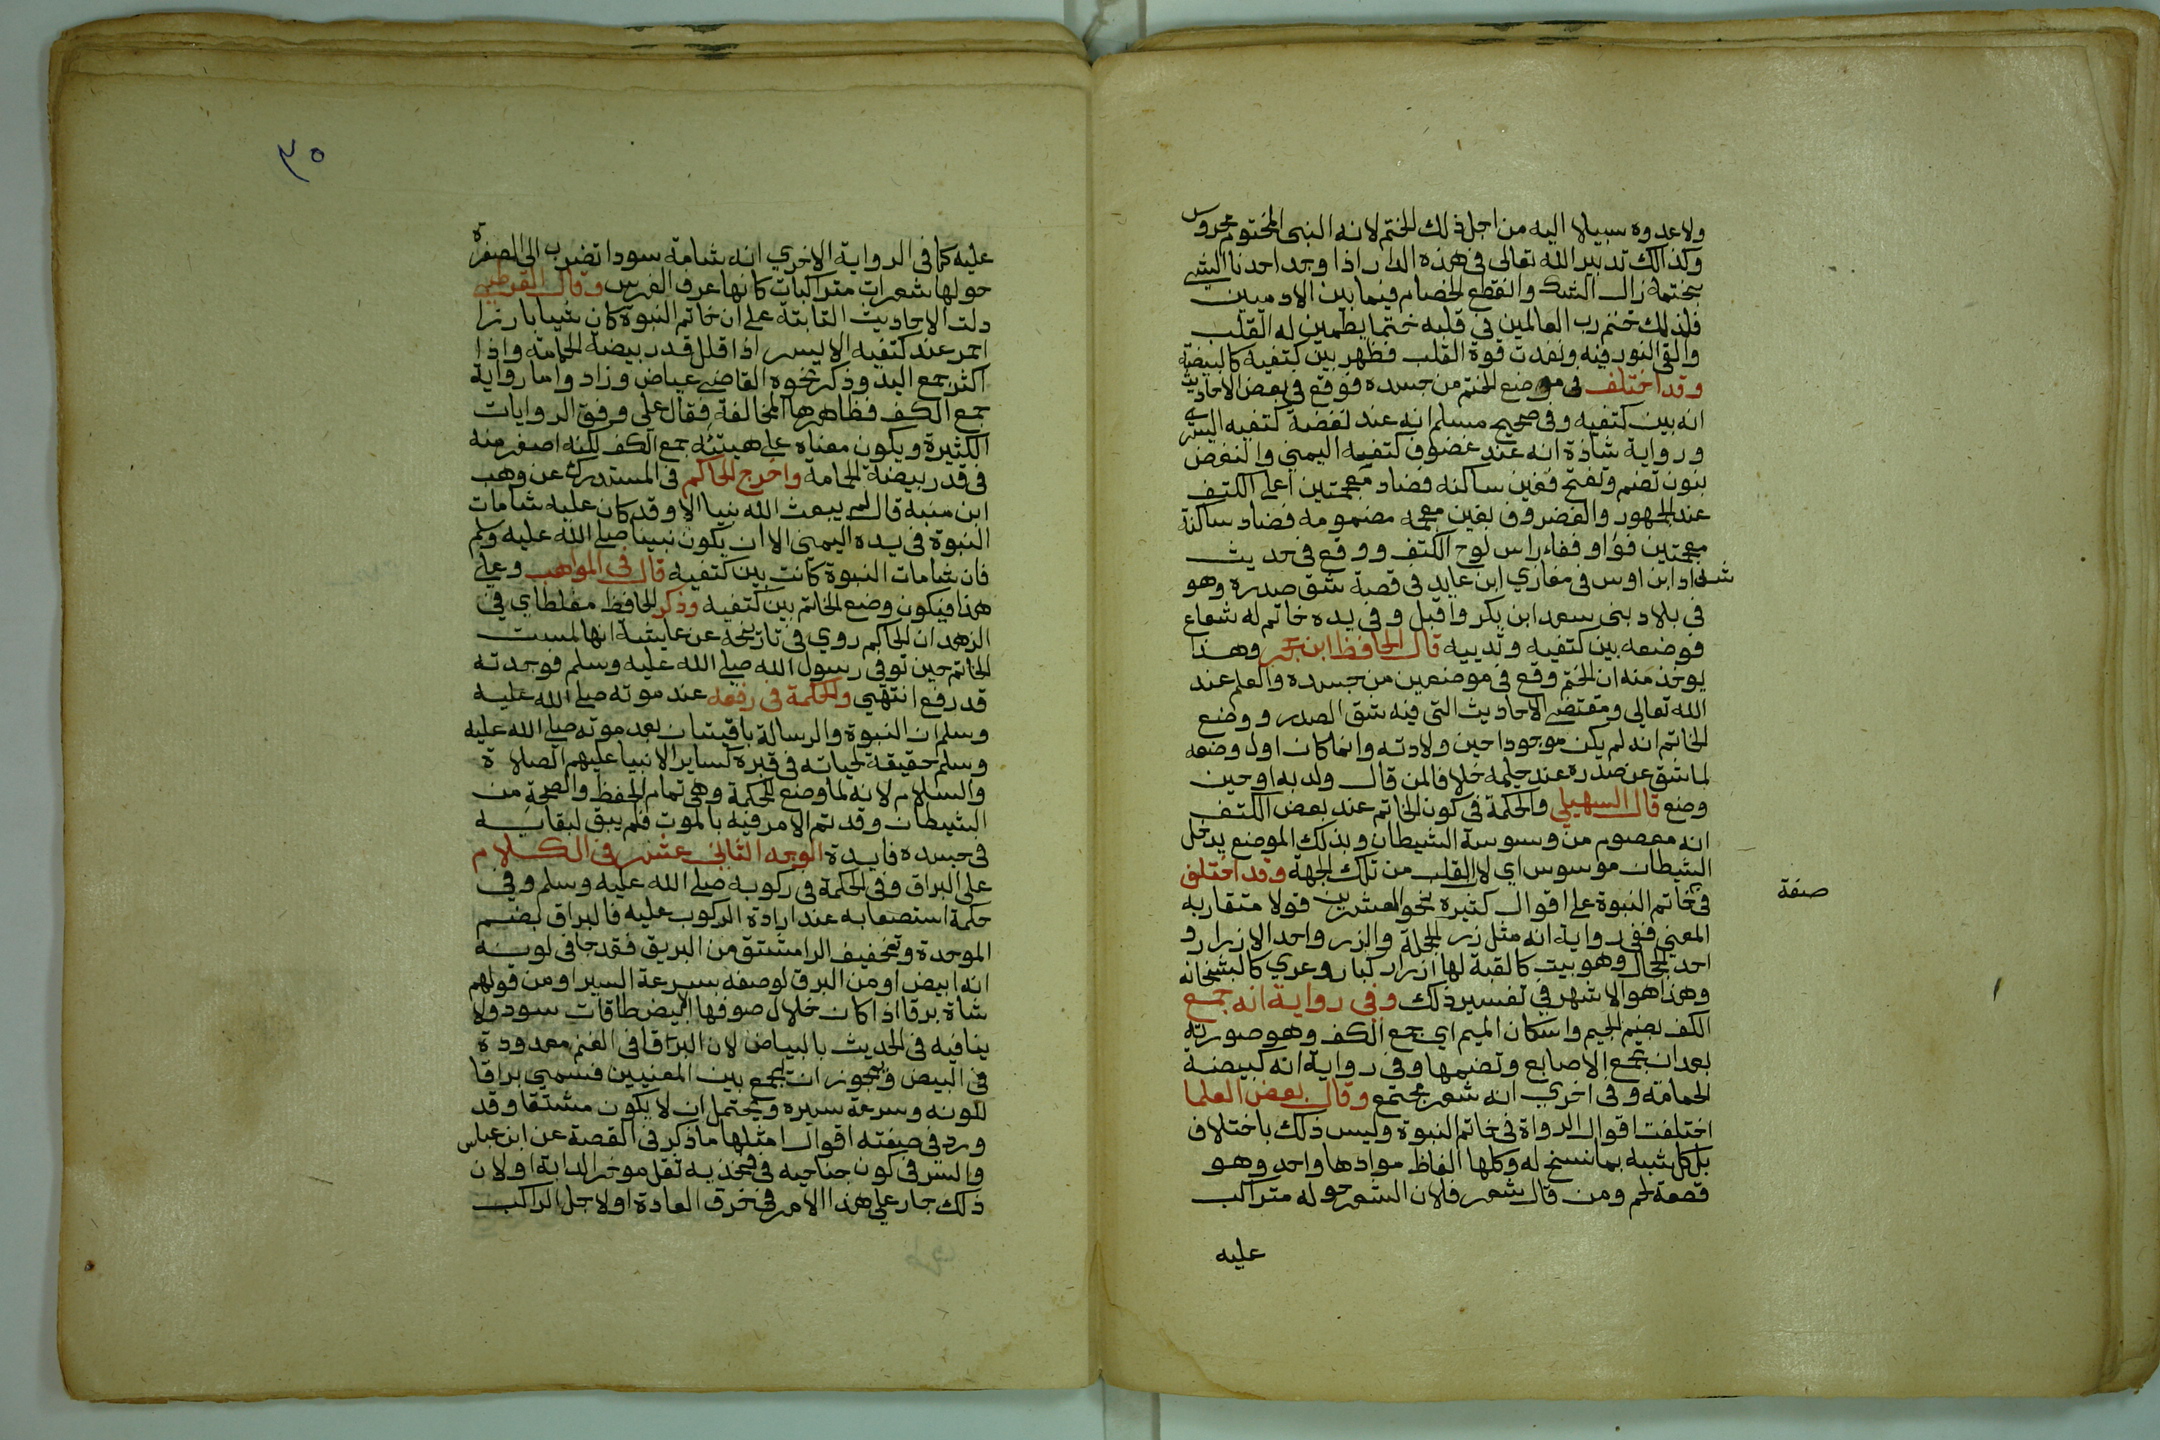 ولا عدوه سبيلا اليه من اجل ذلك الختم لانه النبي المختوم محروس
وكذالك تدبير الله تعالى في هذه الدار اذا وجد احدنا الشي
بختمه زال الشك وانقطع الخصام فيما بين الادميين
فلذلك ختم رب العالمين في قلبه ختما يطمين له القلب
والقى النور فيه ونفدت قوة القلب فظهر بين كتفيه كالبيضة
وقد اختلف في موضع الختم من جسده فوقع في بعض الاحاديث
انه بين كتفيه وفي صحيح مسلم انه عند نغضة كتفيه اليسري
ورواية شاذة انه عند غضوف كتفيه اليمني والنغض
بنون تضم وتفتح فغين ساكنه فضاد معجمتين اعلى الكتف
عند الجهور والغضروف بغين معجمه مضمومه فضاد ساكنة
معجمتين فواو ففاء راس لوح الكتف ووقع في حديث
شداد ابن اوس في مغازي ابن عايد في قصة شق صدره وهو
في بلاد بني سعد ابن بكر واقبل وفي يده خاتم له شعاع
فوضعه بين كتفيه وثدييه قال الحافظ ابن حجر وهذا
يوخذ منه ان الختم وقع في موضعين من جسده والعلم عند
الله تعالى ومقتضى الاحاديث التي فيه شق الصدر ووضع
الخاتم انه لم يكن موجودا حين ولادته وانما كان اول وضعه
لما شق عن صدره عند حليمه خلافا لمن قال ولد به او حين
وضع قال السهيلي والحكمة في كون الخاتم عند بعض الكتف
انه معصوم من وسوسة الشيطان وبذلك الموضع يدخل
الشيطان موسوس اي لا القلب من تلك الجهة وقد اختلف
صفة
في خاتم النبوة على اقوال كثيره نحو العشرين قولا متقاربه
المعني ففي رواية انه مثل زر الحجلة والزر واحد الازرار و
احد الحجال وهو بيت كالقبة لها ازرار كبار وعري كالبشخانه
وهذا هو الاشهر في تفسير ذلك وفي رواية انه جمع
الكف بضم الجيم واسكان الميم اي جمع الكف وهو صورته
بعد ان تجمع الاصابع وتضمها وفي رواية انه كبيضة
الحمامة وفي اخري انه شعر مجتمع وقال بعض العلما
اختلفت اقوال الرواة في خاتم النبوة وليس ذلك باختلاف
بل كل شبه بما نسخ له وكلها الفاظ موادها واحد وهو
قصعة لحم ومن قال شعر فلان الشعر حوله متراكب
عليه
٣٥
عليه كما في الرواية الاخري انه شامة سودا تضرب الى الصفرة
حولها شعرات متراكبات كانها عرف الفرس وقال القرطبي
دلت الاحاديث الثابتة على ان خاتم النبوة كان شيا بارزا
احمر عند كتفيه الايسر اذا قلل قدر بيضة الحمامة واذا
اكثر جمع اليد وذكر نحوه القاضي عياض وزاد واما رواية
جمع الكف فظاهرها المخالفة فقال على وفق الروايات
الكثيرة ويكون معناه على هيئته جمع الكف لكنه اصغر منه
في قدر بيضة الحمامة واخرج الحاكم في المستدرك عن وهب
ابن منبه قال لم يبعث الله نبيا الا وقد كان عليه شامات
النبوة في يده اليمني الا ان يكون نبينا صلى الله عليه وسلم
فان شامات النبوة كانت بين كتفيه قال في المواهب وعلى
هذا فيكون وضع الخاتم بين كتفيه وذكر الحافظ مغلطاي في
الزهد ان الحاكم روي في تاريخه عن عايشة انها لمست
الخاتم حين توفي رسول الله صلى الله عليه وسلم فوجدته
قد رفع انتهي والحكمة في رفعه عند موته صلى الله عليه
وسلم ان النبوة والرسالة باقيتان بعد موته صلى الله عليه
وسلم حقيقة لحياته في قبره كساير الانبيا عليهم الصلاة
والسلام لانه لما وضع للحكمة وهي تمام الحفظ والصحة من
الشيطان وقد تم الامر فيه بالموت فلم يبق لبقايه
في جسده فايدة الوجه الثاني عشر في الكلام
على البراق وفي الحكمة في ركوبه صلى الله عليه وسلم وفي
حكمة استصعابه عند ارادة الركوب عليه فالبراق بضم
الموحدة وتخفيف الرا مشتق من البريق فقد جا في لونه
انه ابيض او من البرق لوصفه بسرعة السير او من قولهم
شاة برقا اذا كان خلال صوفها الابيض طاقات سود ولا
ينافيه في الحديث بالبياض لان البرقا في الغنم معدودة
في البيض ويجوز ان يجمع بين المعنيين فسمي براقا
للونه وسرعة سيره ويحتمل ان لا يكون مشتقا وقد
ورد في صفته اقوال امثلها ما ذكر في القصة عن ابن عباس
والسر في كون جناحيه في فخذيه ثقل موخر الدابة او لان
ذلك جار على هذا الامر في خرق العادة او لاجل الراكب